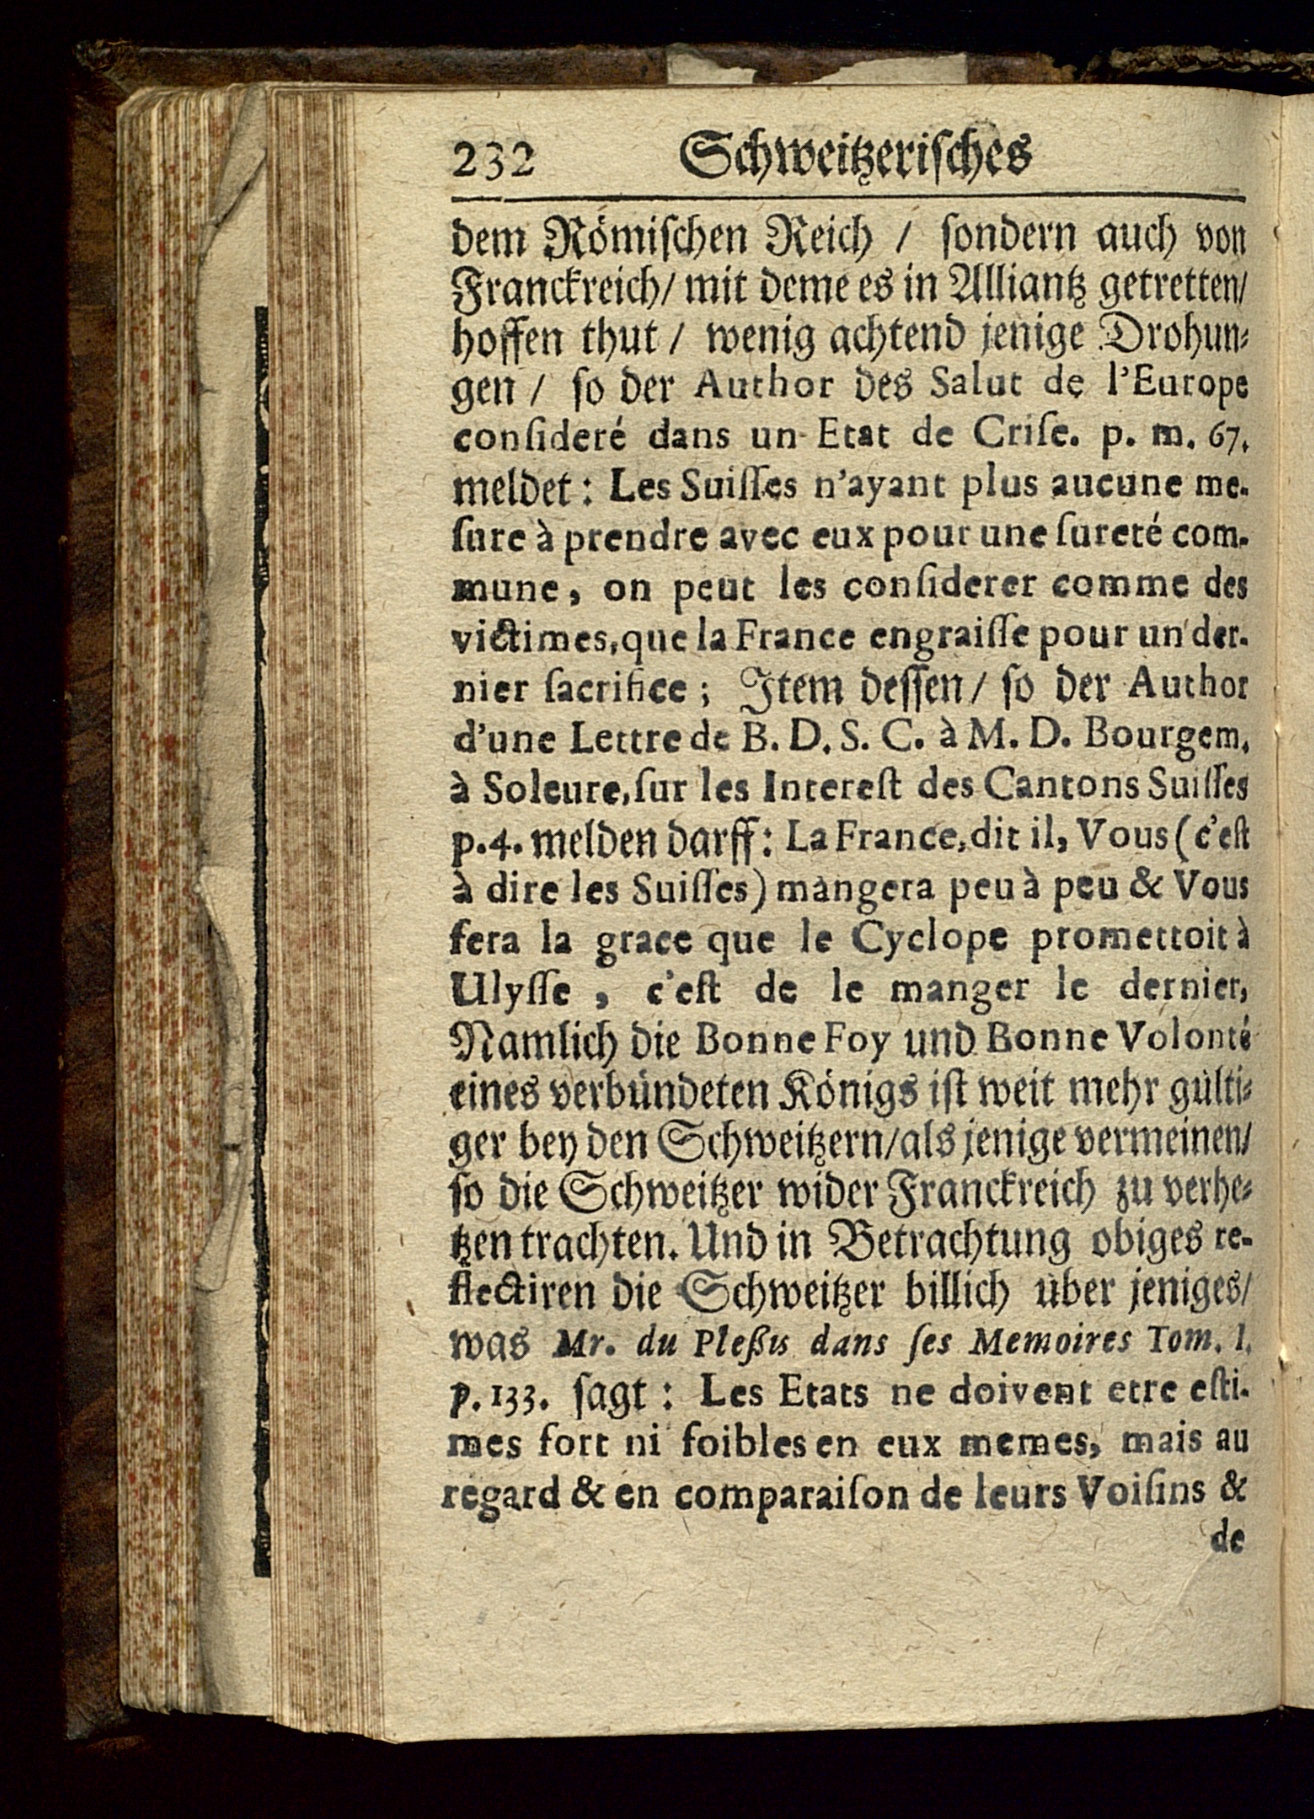 232 Schweitzerisches
dem Römischen Reich / sondern auch von
Franckreich/ mit deme es in Alliantz getretten/
hoffen thut / wenig achtend jenige Drohun-
gen / so der Author des Salut de l'Europe
consideré dans un Etat de Crise. p. m. 67.
meldet: Les Suisses n'ayant plus aucune me-
sure à prendre avec eux pour une sureté com-
mune, on peut les considerer comme des
victimes, que la France engraisse pour un der-
nier sacrifice; Item dessen / so der Author
d'une Lettre de B. D. S. C. à M. D. Bourgem.
à Soleure, sur les Interest des Cantons Suisses
p. 4. melden darff: La France, dit il, Vous (c'est
à dire les Suisses) mangera peu à peu & Vous
fera la grace que le Cyclope promettoit à
Ulysse, c'est de le manger le dernier,
Namlich die Bonne Foy und Bonne Volonté
eines verbündeten Königs ist weit mehr gülti-
ger bey den Schweitzern/ als jenige vermeinen/
so die Schweitzer wider Franckreich zu verhe-
tzen trachten. Und in Betrachtung obiges re-
flectiren die Schweitzer billich über jeniges/
was Mr. du Pleßis dans ses Memoires Tom. I.
p. 133. sagt: Les Etats ne doivent etre esti-
mes fort ni foibles en eux memes, mais au
regard & en comparaison de leurs Voisins &
de